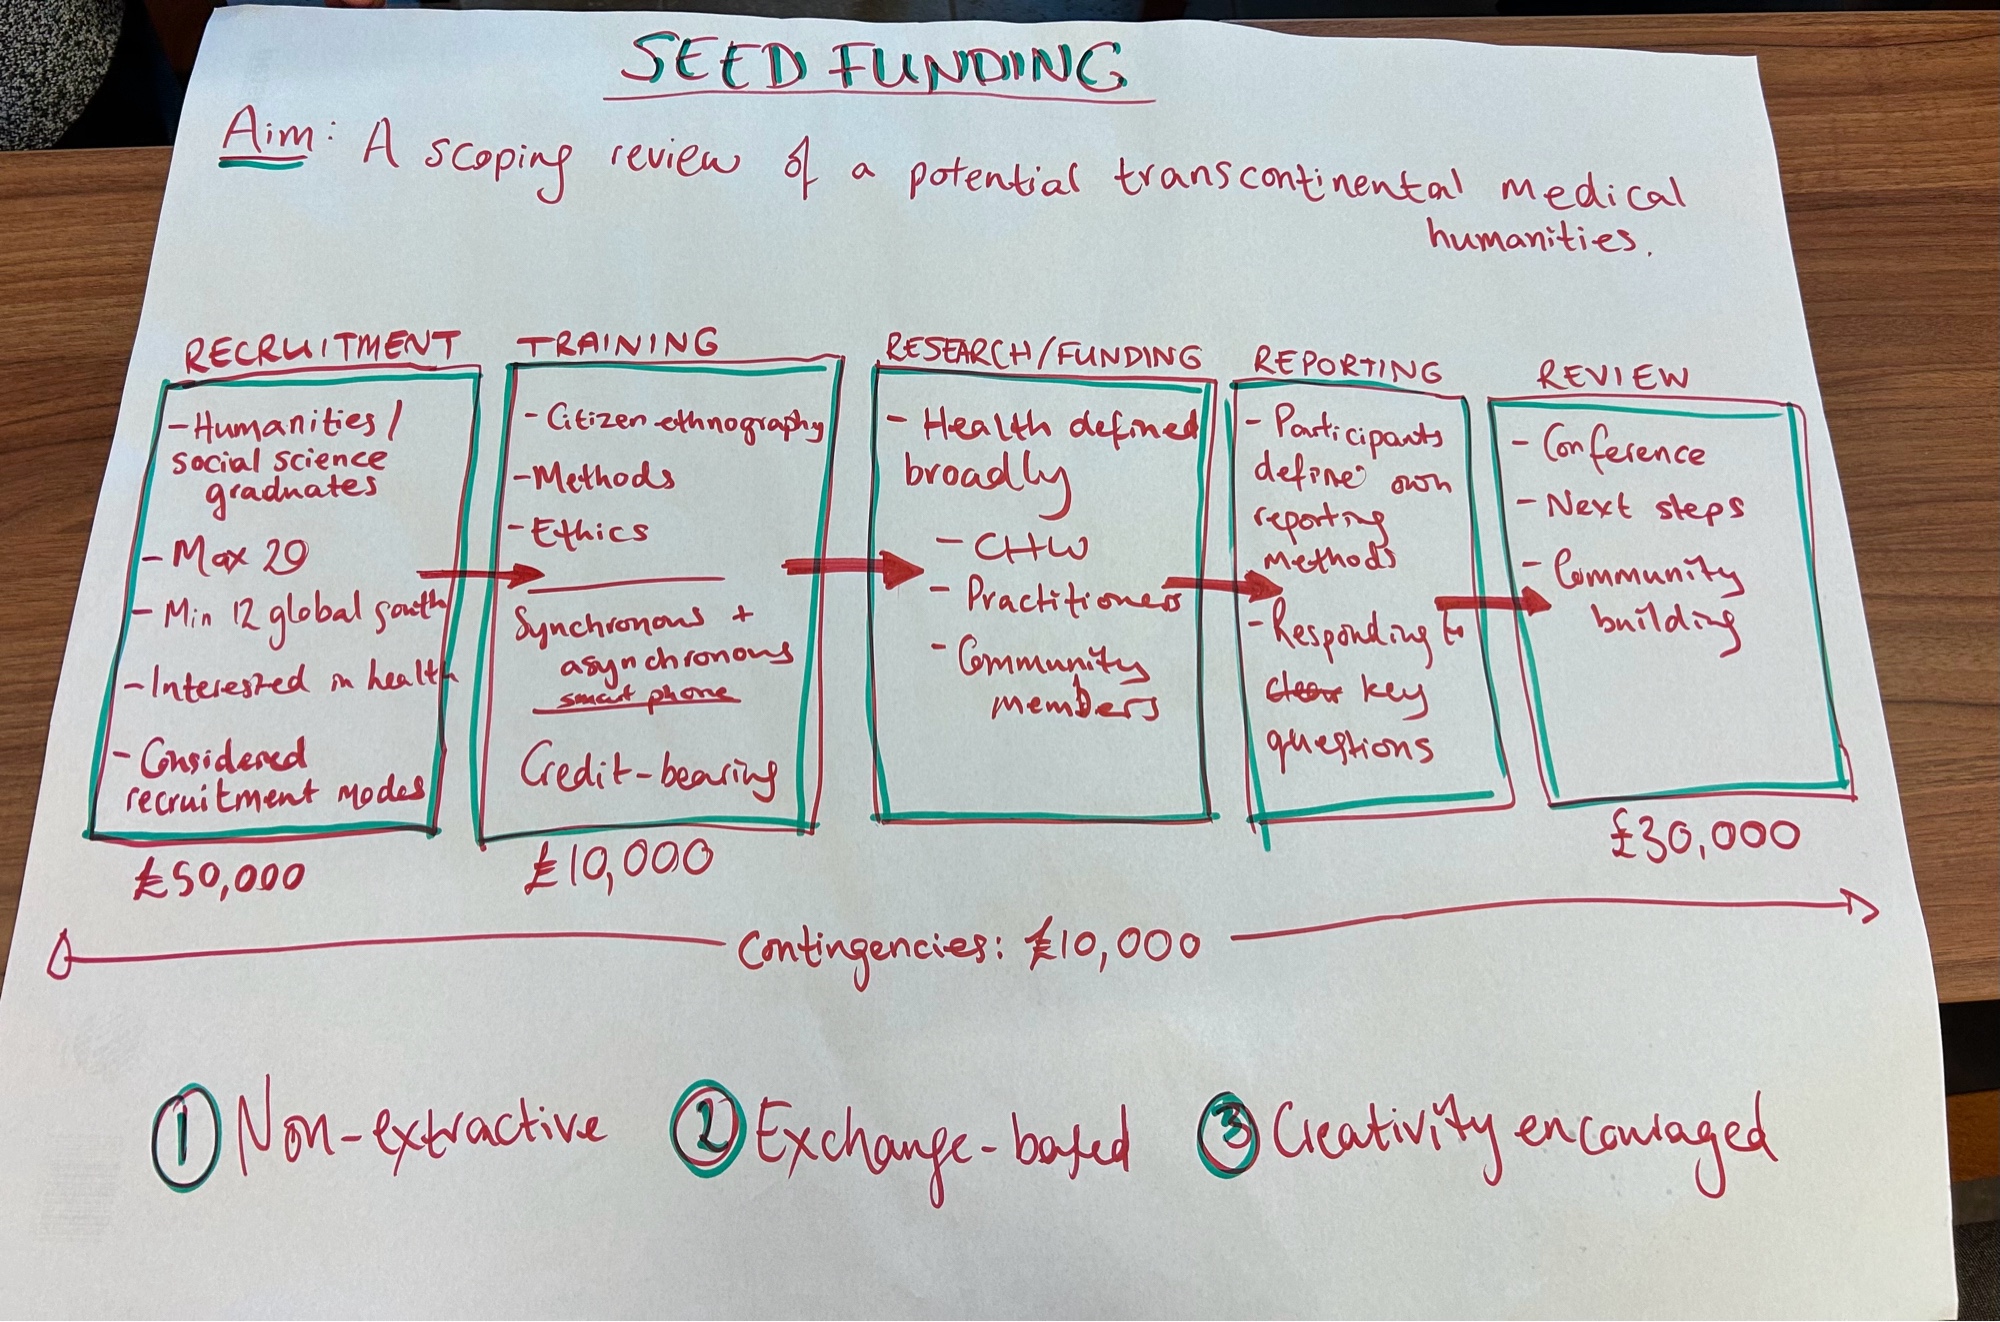 SEED FUNDING
Aim: A scoping review of a potential transcontinental medical
humanities.
RECRUITMENT
- Humanities/
social science
graduates
- Max 20
- Min 12 global south
- Interested in health
- Considered
recruitment modes
£50,000
TRAINING
- Citizen ethnography
- Methods
- Ethics
Synchronous +
asynchronous
smart phone
Credit-bearing
£10,000
RESEARCH/FUNDING
- Health defined
broadly
- CHW
- Practitioners
- Community
members
REPORTING
- Participants
define own
reporting
methods
- Responding to
clear key
questions
REVIEW
- Conference
- Next steps
- Community
building
£30,000
Contingencies: £10,000
1 Non-extractive
2 Exchange-based
3 Creativity encouraged